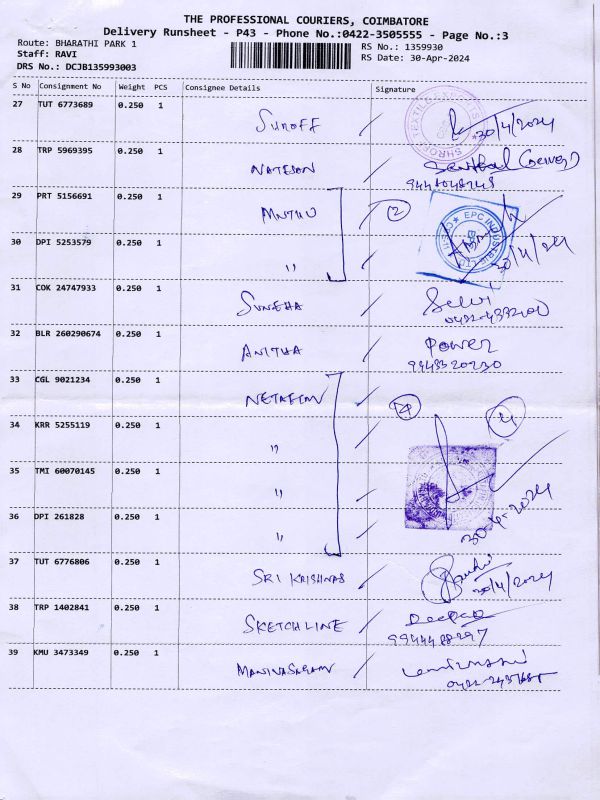 THE PROFESSIONAL COURIERS, COIMBATORE
Delivery Runsheet - P43 - Phone No.:0422-3505555 - Page No.:3
Route: BHARATHI PARK 1
Staff: RAVI
DRS No.: DCJB135993003
RS No.: 1359930
RS Date: 30-Apr-2024
S No Consignment No Weight PCS Consignee Details Signature
27 TUT 6773689 0.250 1 SUROFF / 30/4/2024
28 TRP 5969395 0.250 1 NATESON /
29 PRT 5156691 0.250 1 MNTHU / 2
EPC INDUSTRIE
30 DPI 5253579 0.250 1 " / 30/4/24
31 COK 24747933 0.250 1 SUNEHA / Selvi
32 BLR 260290674 0.250 1 ANITHA / Power
9943320230
33 CGL 9021234 0.250 1 /
34 KRR 5255119 0.250 1 " / 4
35 TMI 60070145 0.250 1 " /
36 DPI 261828 0.250 1 " / 30-4-2024
37 TUT 6776806 0.250 1 SRI KRISHNAS / 30/4/2024
38 TRP 1402841 0.250 1 SKETCHLINE / Deepa
9944488297
39 KMU 3473349 0.250 1 MANIVASAGAM /